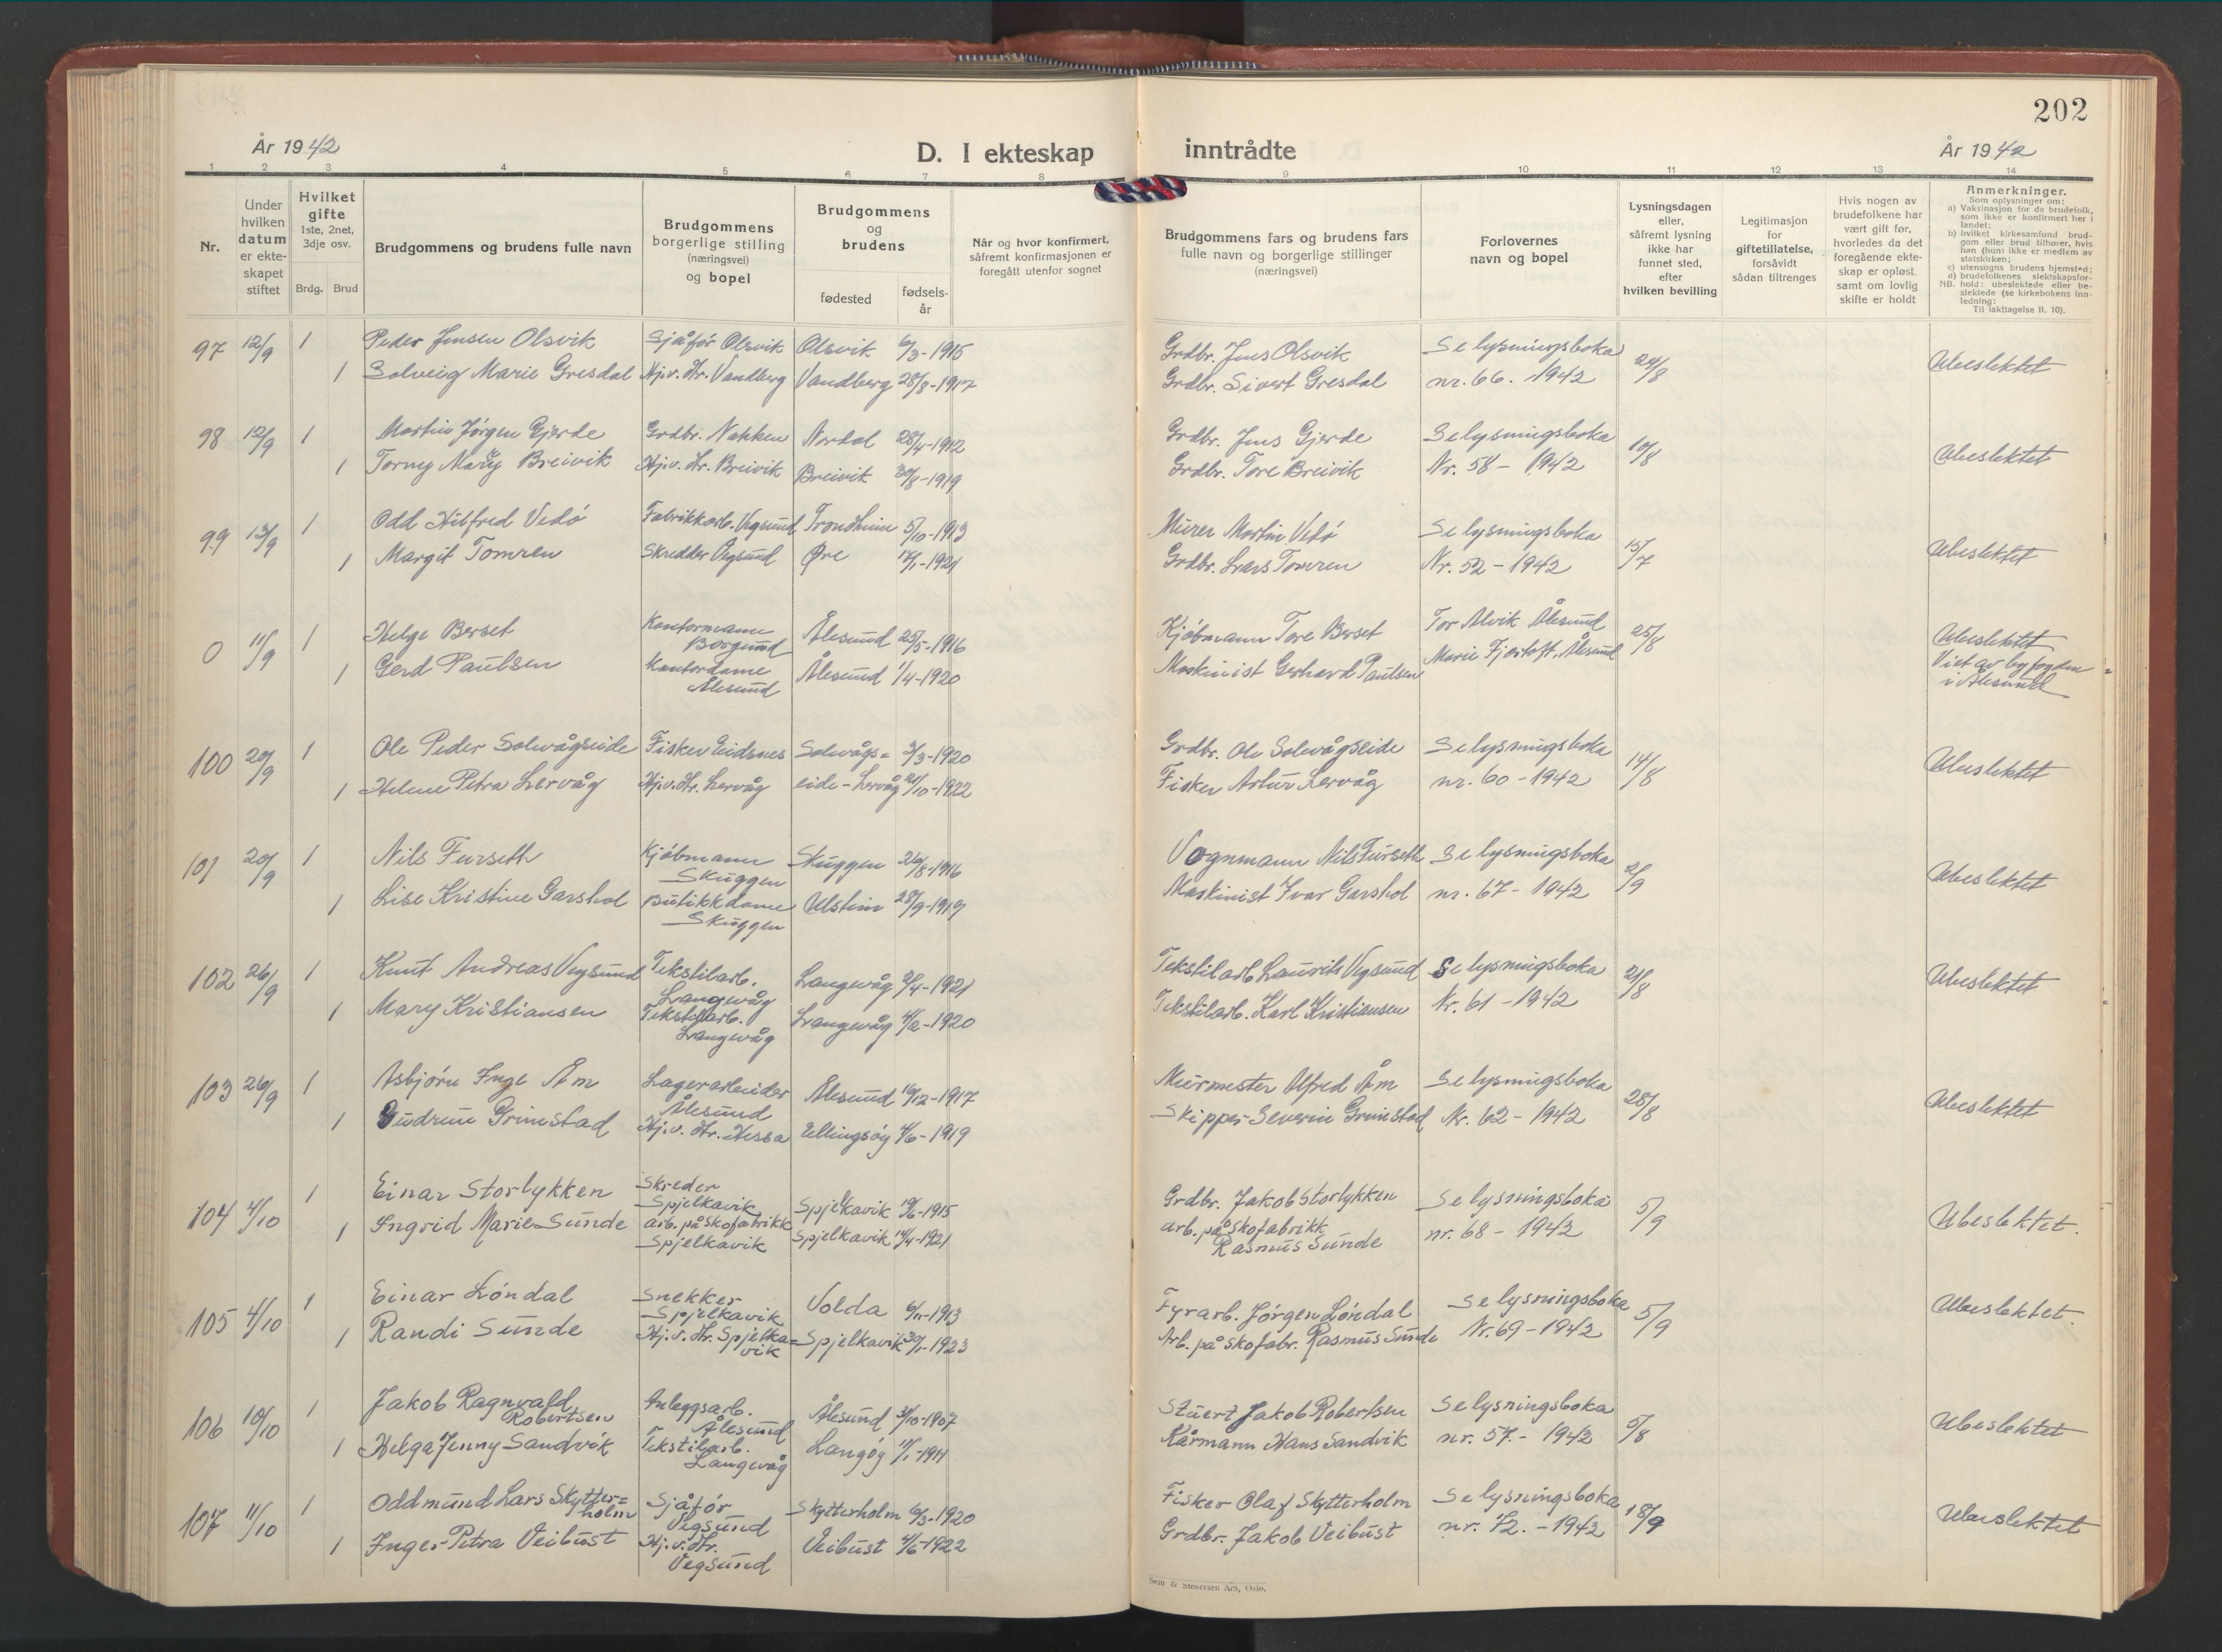 202
År 1942
D. I ekteskap inntrådte
År 1942
1 2 3 4 5 6 7 8 9 10 11 12 13 14
Nr.
Under hvilken datum er ekte-skapet stiftet
Hvilket gifte 1ste, 2net, 3dje osv.
Brdg. Brud
Brudgommens og brudens fulle navn
Brudgommens borgerlige stilling (næringsvei) og bopel
Brudgommens og brudens
fødested
fødsels-år
Når og hvor konfirmert, såfremt konfirmasjonen er foregått utenfor sognet
Brudgommens fars og brudens fars fulle navn og borgerlige stillinger (næringsvei)
Forlovernes navn og bopel
Lysningsdagen eller, såfremt lysning ikke har funnet sted, efter hvilken bevilling
Legitimasjon for giftetillatelse, forsåvidt sådan tiltrenges
Hvis nogen av brudefolkene har vært gift før, hvorledes da det foregående ekte-skap er opløst. samt om lovlig skifte er holdt
Anmerkninger.
Som oplysninger om:
a) Vaksinasjon for de brudefolk, som ikke er konfirmert her i landet;
b) hvilket kirkesamfund brud-gom eller brud tilhører, hvis han (hun) ikke er medlem av statskirken;
c) utensogns brudens hjemsted;
d) brudefolkenes slektskapsfor-hold: ubeslektede eller be-slektede (se kirkebokens inn-ledning:
NB.
Til iakttagelse II. 10).
97 12/9 1 Peder Jensen Olsvik Sjåfór Olsvik Olsvik 6/3-1915 Grdbr. Jens Olsvik Se lysningsboka 24/8 Ubeslektet
1 Solveig Marie Gresdal Hj.v. Hr. Vandberg Vandberg 28/8-1917 Grdbr. Sivert Gresdal nr. 66. -1942
98 12/9 1 Martin Jørgen Gjerde Grdbr. Nakken Nordal 28/4-1912 Grdbr. Jens Gjerde Se lysningsboka 10/8 Ubeslektet
1 Torney Mary Breivik Hj.v. Hr. Breivik Breivik 30/8-1919 Grdbr. Tore Breivik Nr. 58 - 1942
99 13/9 1 Odd Hilfred Vedó Fabrikkarb. Vegsund Trondheim 5/10-1913 Murer Martin Vedó Se lysningsboka 15/7 Ubeslektet
1 Margit Tomren Skredder Vegsund Øre 17/1-1921 Grdbr. Lars Tomren Nr. 52 - 1942
0 11/9 1 Helge Berset Kontormann Borgund Ålesund 25/5-1916 Kjóbmann Tore Berset Tor Alvik Ålesund 25/8 Ubeslektet
1 Gerd Paulsen Kontordame Ålesund Ålesund 1/4-1920 Maskinist Gerhard Paulsen Marie Fjørtoft, Ålesund Viet av byfogden i Ålesund
100 20/9 1 Ole Peder Solevågseide Fisker Eidsnes Solevågs= 3/3-1920 Grdbr. Ole Solevågseide Se lysningsboka 14/8 Ubeslektet
1 Helene Petra Lervåg Hj.v. Hr. Lervåg eide - Lervåg 21/10-1922 Fisker Artur Lervåg nr. 60 - 1942
101 20/9 1 Nils Furseth Kjóbmann Skuggen Skuggen 26/8-1916 Vognmann Nils Furseth Se lysningsboka 2/9 Ubeslektet
1 Lise Kristine Garshol Butikkdame Skuggen Ulstein 28/9-1919 Maskinist Ivar Garshol nr. 67 - 1942
102 26/9 1 Knut Andreas Vegsund Tekstilarb. Langevåg Langevåg 9/4-1921 Tekstilarb Laurits Vegsund Se lysningsboka 21/8 Ubeslektet
1 Mary Kristiansen Tekstilarb. Langevåg Langevåg 4/2-1920 Tekstilarb. Karl Kristiansen Nr. 61 - 1942
103 26/9 1 Asbjórn Inge Åm Lagerarbeider Ålesund Ålesund 16/12-1917 Murmester Alfred Åm Se lysningsboka 28/8 Ubeslektet
1 Gudrun Grimstad Hj.v. Hr. Hessa Ellingsóy 4/6-1919 Skipper Severin Grimstad Nr. 62 - 1942
104 4/10 1 Einar Storlykken Skreder Spjelkavik Spjelkavik 19/6-1915 Grdbr. Jakob Storlykken Se lysningsboka 5/9 Ubeslektet.
1 Ingrid Marie Sunde arb. på Skofabrikk Spjelkavik Spjelkavik 14/4-1921 arb. på Skofabrikk Rasmus Sunde nr. 68 - 1942
105 4/10 1 Einar Lóndal Snekker Spjelkavik Volda 6/11-1913 Fyrarb. Jórgen Lóndal Se lysningsboka 5/9 Ubeslektet.
1 Randi Sunde Hj.v. Hr. Spjelka=vik Spjelkavik 30/1-1923 Arb. på Skofabr. Rasmus Sunde Nr. 69 - 1942
106 10/10 1 Jakob Ragnvald Robertsen Anleggsarb. Ålesund Ålesund 31/10-1907 Stuert Jakob Robertsen Se lysningsboka 5/8 Ubeslektet
1 Helga Jenny Sandvik Tekstilarb. Langevåg Langóy 17/1-1911 Kårmann Hans Sandvik nr. 57. - 1942
107 11/10 1 Oddmund Lars Skytter=holm Sjåfór Vegsund Skytterholm 6/3-1920 Fisker Olaf Skytterholm Se lysningsboka 18/9 Ubeslektet
1 Inger Petra Veibust Hj.v. Hr. Vegsund Veibust 4/6-1922 Grdbr. Jakob Veibust nr. 72. - 1942
Sem & Stenersen A/S, Oslo.